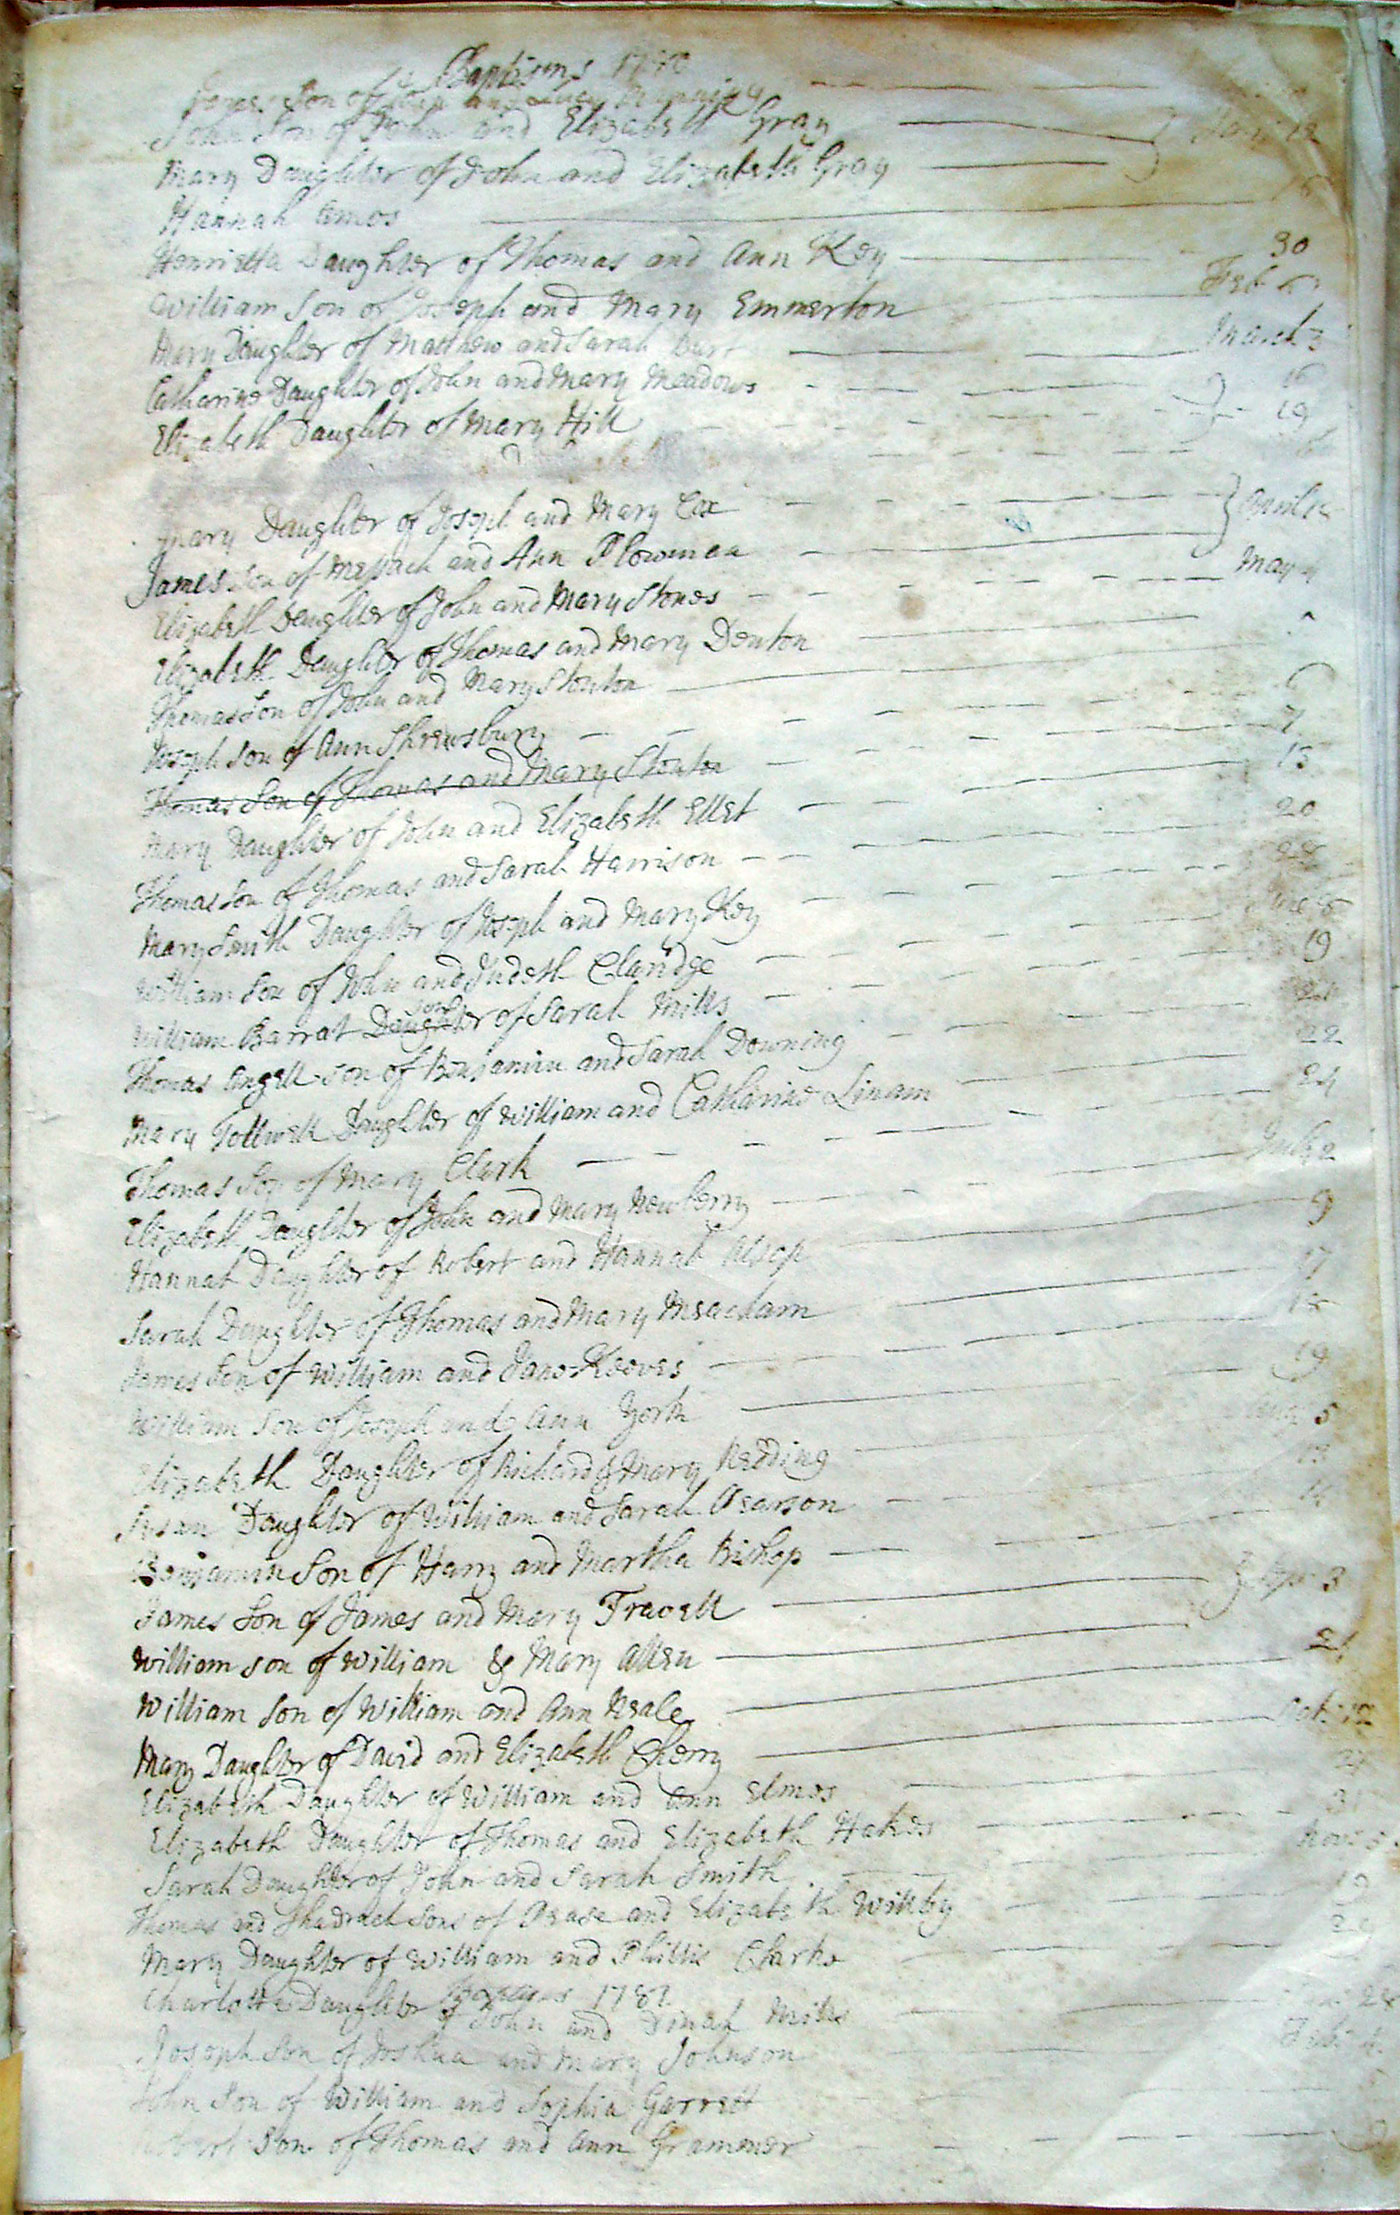 Baptisms 1780
James Son of John and Lucy
John Son of John and Elizabeth Gray
Mary Daughter of John and Elizabeth Gray
Hannah Amos
Henrietta Daughter of Thomas and Ann Key 30
William Son of Joseph and Mary Emmerton Feb
Mary Daughter of Matthew and Sarah Burt March 3
Catharine Daughter of John and Mary Meadows 16
Elizabeth Daughter of Mary Hill 19
Mary Daughter of Joseph and Mary Cox April
James son of Meshach and Ann Plowman
Elizabeth Daughter of John and Mary Stones May 4
Elizabeth Daughter of Thomas and Mary Denton
Thomas Son of John and Mary Stonton
Joseph Son of Ann Shrewsbury 7
Thomas Son of Thomas and Mary Stonton 13
Mary Daughter of John and Elizabeth Ellet 20
Thomas Son of Thomas and Sarah Harrison 28
Mary Smith Daughter of Joseph and Mary Key June
William Son of John and Judeth Claridge 19
son
William Barrat Daughter of Sarah Mills
Thomas Angell son of Benjamin and Sarah Downing 22
Mary Tollwell Daughter of William and Catharine Linam 24
Thomas Son of Mary Clark July 2
Elizabeth Daughter of John and Mary Newberry 9
Hannah Daughter of Robert and Hannah Alsop 17
Sarah Daughter of Thomas and Mary Meacham
James Son of William and Jane Reeves 19
William Son of Joseph and Ann York 5
Elizabeth Daughter of Richard & Mary Redding 13
Susan Daughter of William and Sarah Pearson
Benjamin Son of Harry and Martha Bishop
James Son of James and Mary Travell 3
William son of William & Mary Allen
William Son of William and Ann Neale
Mary Daughter of David and Elizabeth Cherry Oct.
Elizabeth Daughter of William and Ann Elmes
Elizabeth Daughter of Thomas and Elizabeth Hakes 31
Sarah Daughter of John and Sarah Smith Nov
Thomas and Shadrach Sons of Pease and Elizabeth Wilkby
Mary Daughter of William and Phillis Clarke
1781
Charlotte Daughter of John and Dinah Mills 28
Joseph Son of Joshua and Mary Johnson Feb. 4
John Son of William and Sophia Garrett
Son of Thomas and Ann Grammer